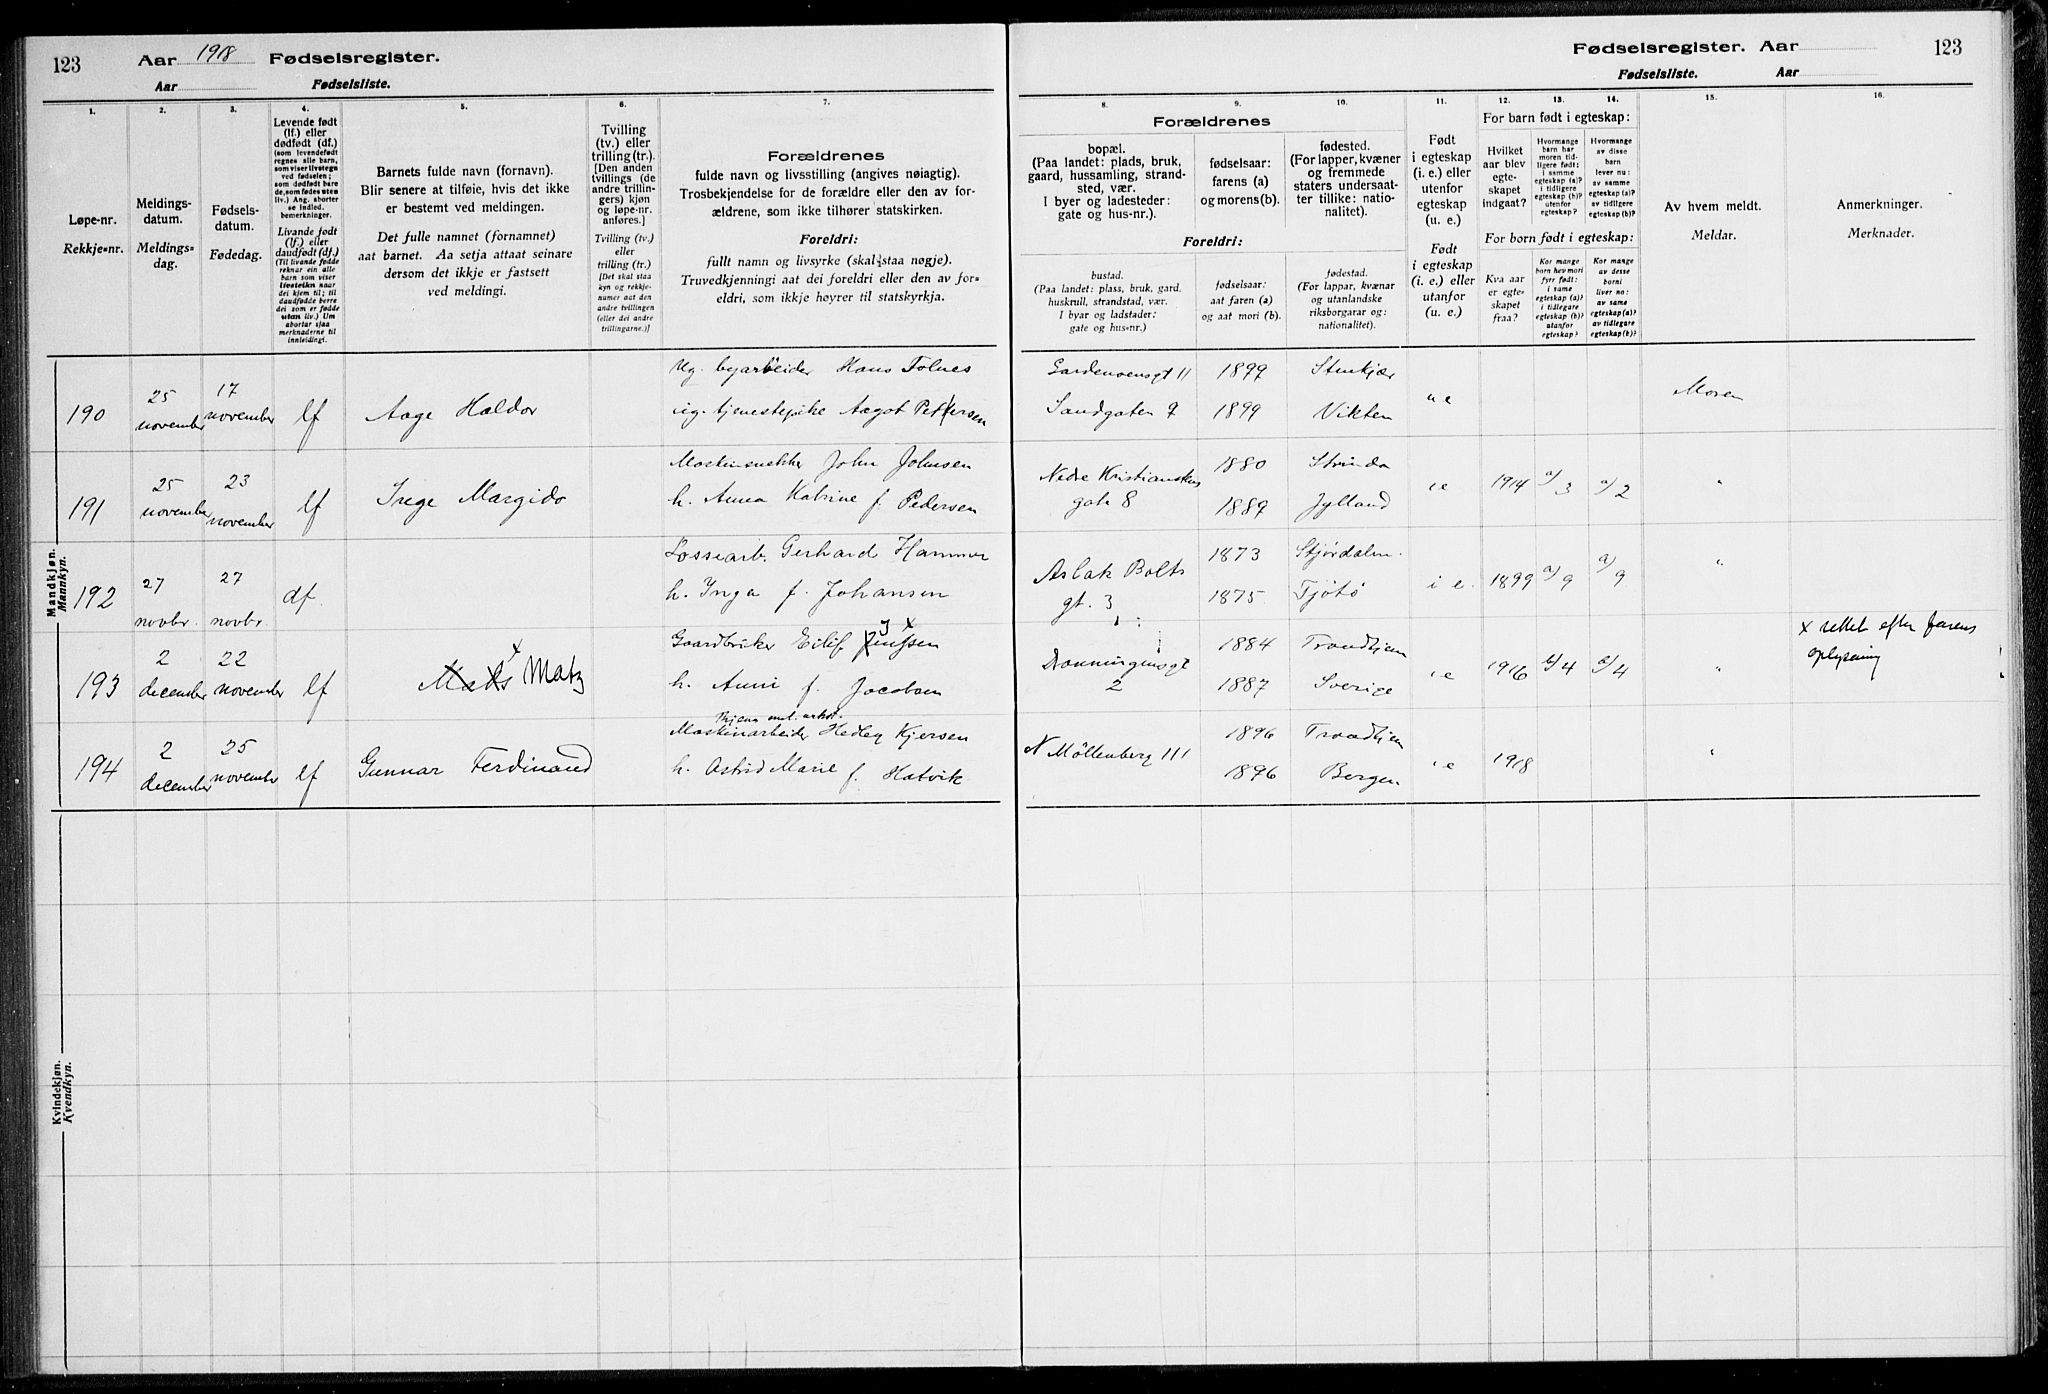 123 Aar 1918 Fødselsregister.
Aar Fødselsliste.
Fødselsregister. Aar 123
Fødselsliste. Aar
1.
Løpe-nr.
Rekkje=nr.
2.
Meldings-
datum.
Meldings=
dag.
3.
Fødsels-
datum.
Fødedag.
4.
Levende født
(lf.) eller
dødfødt (df.)
(som levendefødt
regnes alle barn,
som viser livstegn
ved fødselen;
som dødfødt bare
de, som fødes uten
liv.) Ang. aborter
se indled.
bemerkninger.
Livande født
(lf.) eller
daudfødt (df.)
(Til livande fødde
reknar ein alle
barn som viser
livsteikn naar
dei kjem til; til
daudfødde berre
dei som er fødde
utan liv.) Um
abortar sjaa
merknaderne til
innleidingi.
5.
Barnets fulde navn (fornavn).
Blir senere at tilføie, hvis det ikke
er bestemt ved meldingen.
Det fulle namnet (fornamnet)
aat barnet. Aa setja attaat seinare
dersom det ikkje er fastsett
ved meldingi.
6.
Tvilling
(tv.) eller
trilling (tr.).
[Den anden
tvillings (de
andre trillin-
gers) kjøn
og løpe-nr.
anføres.]
Tvilling (tv.)
eller
trilling (tr.)
[Det skal staa
kyn og rekkje-
numer aat den
andre tvillingen
(eller dei andre
trillingarne.)]
7.
Forældrenes
fulde navn og livsstilling (angives nøiagtig).
Trosbekjendelse for de forældre eller den av for-
ældrene, som ikke tilhører statskirken.
Foreldri:
fullt namn og livsyrke (skal staa nøgje).
Truvedkjenningi aat dei foreldri eller den av for=
eldri, som ikkje høyrer til statskyrkja.
8.
Forældrenes
bopæl.
(Paa landet: plads, bruk,
gaard, hussamling, strand-
sted, vær.
I byer og ladesteder:
gate og hus-nr.).
Foreldri:
bustad.
(Paa landet: plass, bruk, gard,
huskrull, strandstad, vær.
I byar og ladstader:
gate og hus=nr.)
9.
fødselsaar:
farens (a)
og morens (b).
fødselsaar:
aat faren (a)
og aat mori (b).
10.
fødested.
(For lapper, kvæner
og fremmede
staters undersaat-
ter tillike: natio-
nalitet).
fødestad.
(For lappar, kvænar
og utanlandske
riksborgarar og:
nationalitet).
11.
Født
i egteskap
(i. e.) eller
utenfor
egteskap
(u. e.)
Født
i egteskap
(i. e.) eller
utanfor
(u. e.)
For barn født i egteskap:
12.
Hvilket
aar blev
egte-
skapet
indgaat?
13.
Hvormange
barn har
moren tid-
ligere født:
i samme
egteskap (a)?
i tidligere
egteskap (b)?
utenfor
egteskap?
14.
Hvormange
av disse
barn
lever nu:
av samme
egteskap (a)?
av tidligere
egteskap (b)?
For born født i egteskap:
Kva aar
er egte-
skapet
fraa?
Kor mange
born hev mori
fyrr født:
i same
egteskap (a)?
i tidlegare
egteskap (b)?
utanfor
egteskap?
Kor mange
av desse
borni
liver no:
av same
egteskap (a)?
av tidlegare
egteskap (b)?
15.
Av hvem meldt.
Meldar.
16.
Anmerkninger.
Merknader.
Mandkjøn.
Mannkyn.
190 25 november 17 november lf Aage Haldor
Ug. byarbeider Hans Folnes
ug. tjenestepike Aagot Pettersen
Gardemoensgt 11 1899 Stenkjær
Sandgaten 7 1899 Vikten
u e Moren
191 25 november 23 november lf Inge Margido
Maskinsnekker John Johnsen
h. Anna Katrine f. Pedersen
Nedre Kristianstens 1880 Strinda
gate 8 1889 Jylland
i e 1914 a/3 a/2 "
192 27 novbr. 27 novbr. df.
Lossearb. Gerhard Hammer
h. Inga f. Johansen
Aslak Bolts 1873 Stjørdalen.
gt. 3 1875 Tjötö
i e. 1899 a/9 a/9 "
193 2 december 22 november lf Mads x Matz
Gaardbruker Eilif Jenssen x
h. Anni f. Jacobsen
Dronningensgt 1884 Trondhjem
2 1887 Sverige
i e 1916 b/4 b/4 "
x rettet efter farens
oplysning
194 2 december 25 november lf Gunnar Ferdinand
Maskinarbeider Hedley Kjersen
h. Astrid Marie f. Hatvik
N Möllenberg 111 1896 Trondhjem
1896 Bergen
i e 1918 "
Kvindekjøn.
Kvendkyn.